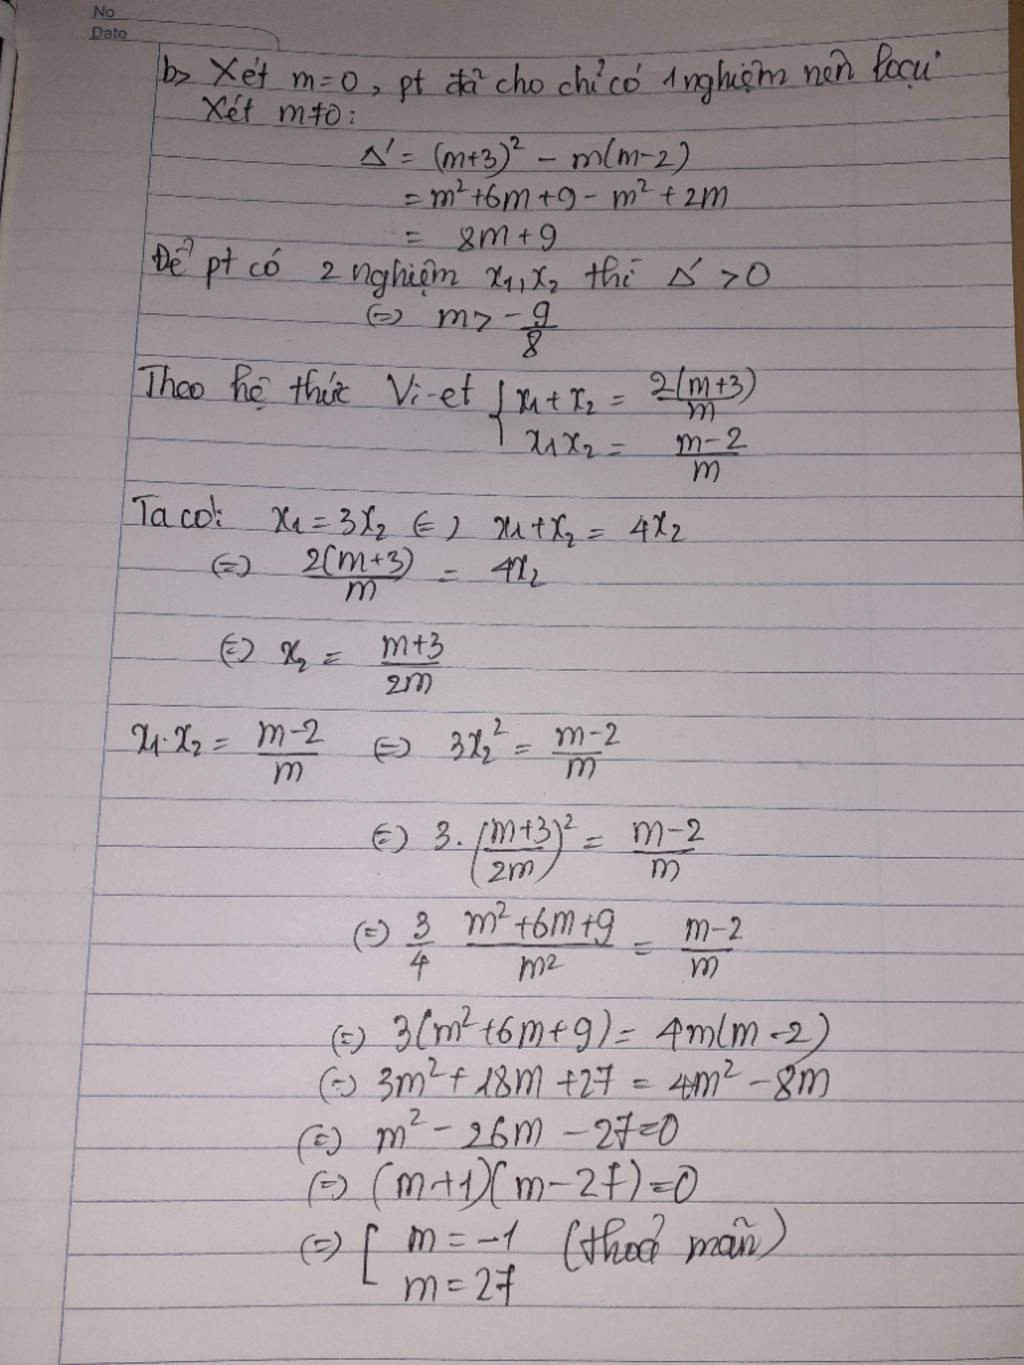 No
Date
b> Xét m=0, pt đã cho chỉ có 1 nghiệm nên loại
Xét m≠0:
Δ' = (m+3)² - m(m-2)
= m²+6m+9 - m² + 2m
= 8m+9
Để pt có 2 nghiệm x₁, x₂ thì Δ' > 0
(=) m > -9/8
Theo hệ thức Vi-et { x₁+x₂ = 2(m+3)/m
x₁x₂ = (m-2)/m
Ta có: x₁ = 3x₂ (=) x₁+x₂ = 4x₂
(=) 2(m+3)/m = 4x₂
(=) x₂ = (m+3)/2m
x₁.x₂ = (m-2)/m (=) 3x₂² = (m-2)/m
(=) 3.((m+3)/2m)² = (m-2)/m
(=) 3/4 (m²+6m+9)/m² = (m-2)/m
(=) 3(m²+6m+9) = 4m(m-2)
(=) 3m²+18m+27 = 4m²-8m
(=) m²-26m-27=0
(=) (m+1)(m-27)=0
(=) [ m=-1 (thoả mãn)
m=27